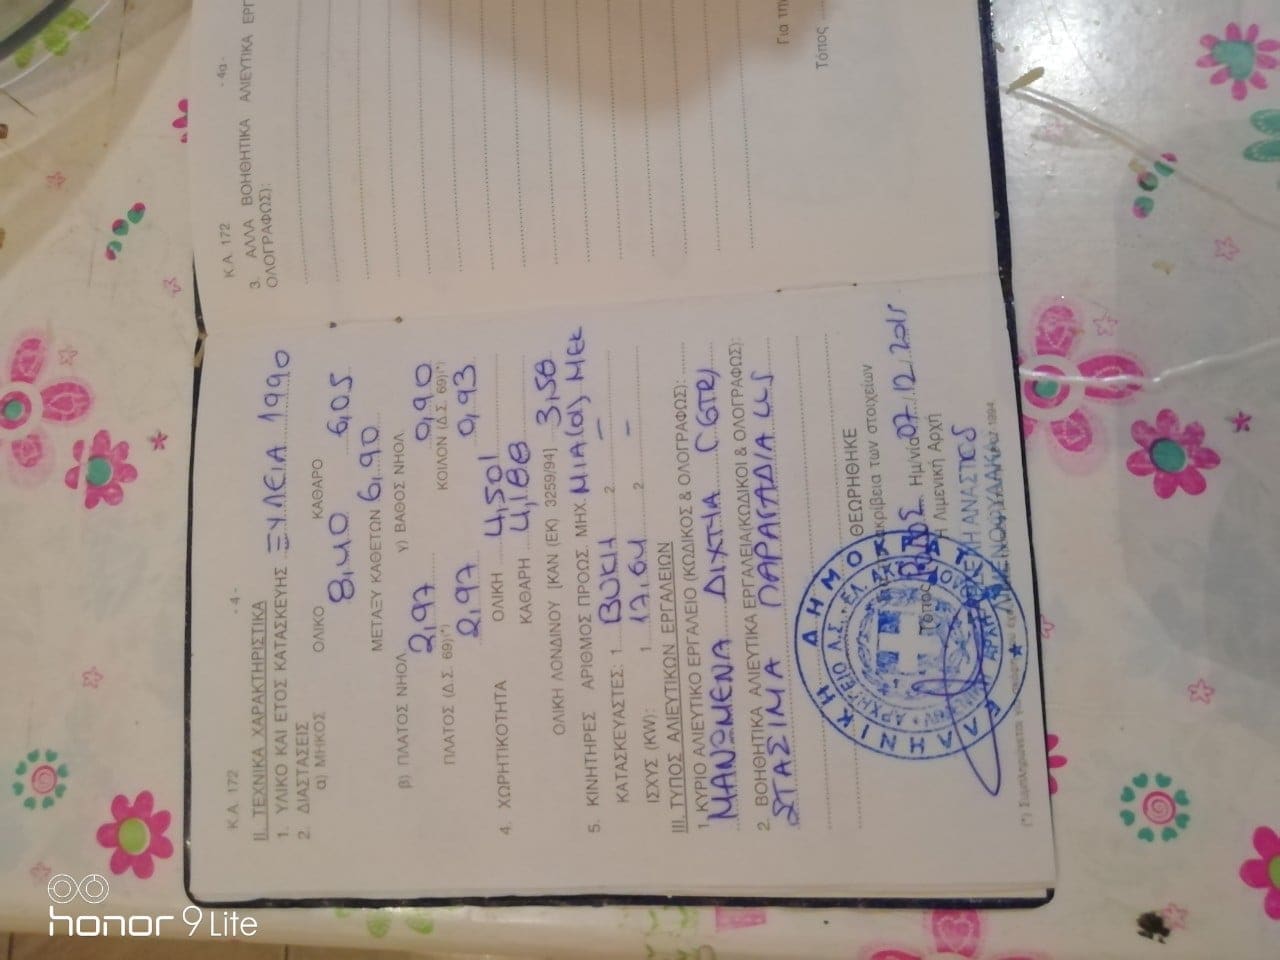 Κ.Α. 172
- 4 -
ΙΙ. ΤΕΧΝΙΚΑ ΧΑΡΑΚΤΗΡΙΣΤΙΚΑ
1. ΥΛΙΚΟ ΚΑΙ ΕΤΟΣ ΚΑΤΑΣΚΕΥΗΣ ΞΥΛΕΙΑ 1990
2. ΔΙΑΣΤΑΣΕΙΣ
α) ΜΗΚΟΣ ΟΛΙΚΟ 8,40 ΚΑΘΑΡΟ 6,05
ΜΕΤΑΞΥ ΚΑΘΕΤΩΝ 6,90
β) ΠΛΑΤΟΣ ΝΗΟΛ 2,97 γ) ΒΑΘΟΣ ΝΗΟΛ 0,90
ΠΛΑΤΟΣ (Δ.Σ. 69)(*) 2,97 ΚΟΙΛΟΝ (Δ.Σ. 69)(*) 0,93
4. ΧΩΡΗΤΙΚΟΤΗΤΑ ΟΛΙΚΗ 4,501
ΚΑΘΑΡΗ 4,188
ΟΛΙΚΗ ΛΟΝΔΙΝΟΥ [ΚΑΝ (ΕΚ) 3259/94] 3,58
5. ΚΙΝΗΤΗΡΕΣ ΑΡΙΘΜΟΣ ΠΡΟΩΣ. ΜΗΧ. ΜΙΑ (01) ΜΕΚ
ΚΑΤΑΣΚΕΥΑΣΤΕΣ: 1. ΒΟΚΗ 2. —
ΙΣΧΥΣ (KW): 1. 17,64 2. -
ΙΙΙ. ΤΥΠΟΣ ΑΛΙΕΥΤΙΚΩΝ ΕΡΓΑΛΕΙΩΝ
1. ΚΥΡΙΟ ΑΛΙΕΥΤΙΚΟ ΕΡΓΑΛΕΙΟ (ΚΩΔΙΚΟΣ & ΟΛΟΓΡΑΦΩΣ):
ΜΑΝΩΜΕΝΑ ΔΙΧΤΥΑ (GTR)
2. ΒΟΗΘΗΤΙΚΑ ΑΛΙΕΥΤΙΚΑ ΕΡΓΑΛΕΙΑ(ΚΩΔΙΚΟΙ & ΟΛΟΓΡΑΦΩΣ):
ΣΤΑΣΙΜΑ ΠΑΡΑΓΑΔΙΑ LLS
ΘΕΩΡΗΘΗΚΕ
ακρίβεια των στοιχείων
Τόπος Ημ/νία 07.12.2015
Η Λιμενική Αρχή
ΕΛΛΗΝΙΚΗ ΔΗΜΟΚΡΑΤΙΑ
ΑΡΧΗΓΕΙΟ Λ.Σ.-ΕΛ.ΑΚΤ.
Κ.Α. 172
- 4α -
3. ΑΛΛΑ ΒΟΗΘΗΤΙΚΑ ΑΛΙΕΥΤΙΚΑ
ΟΛΟΓΡΑΦΩΣ):
Για τη
Τόπος
honor 9 Lite